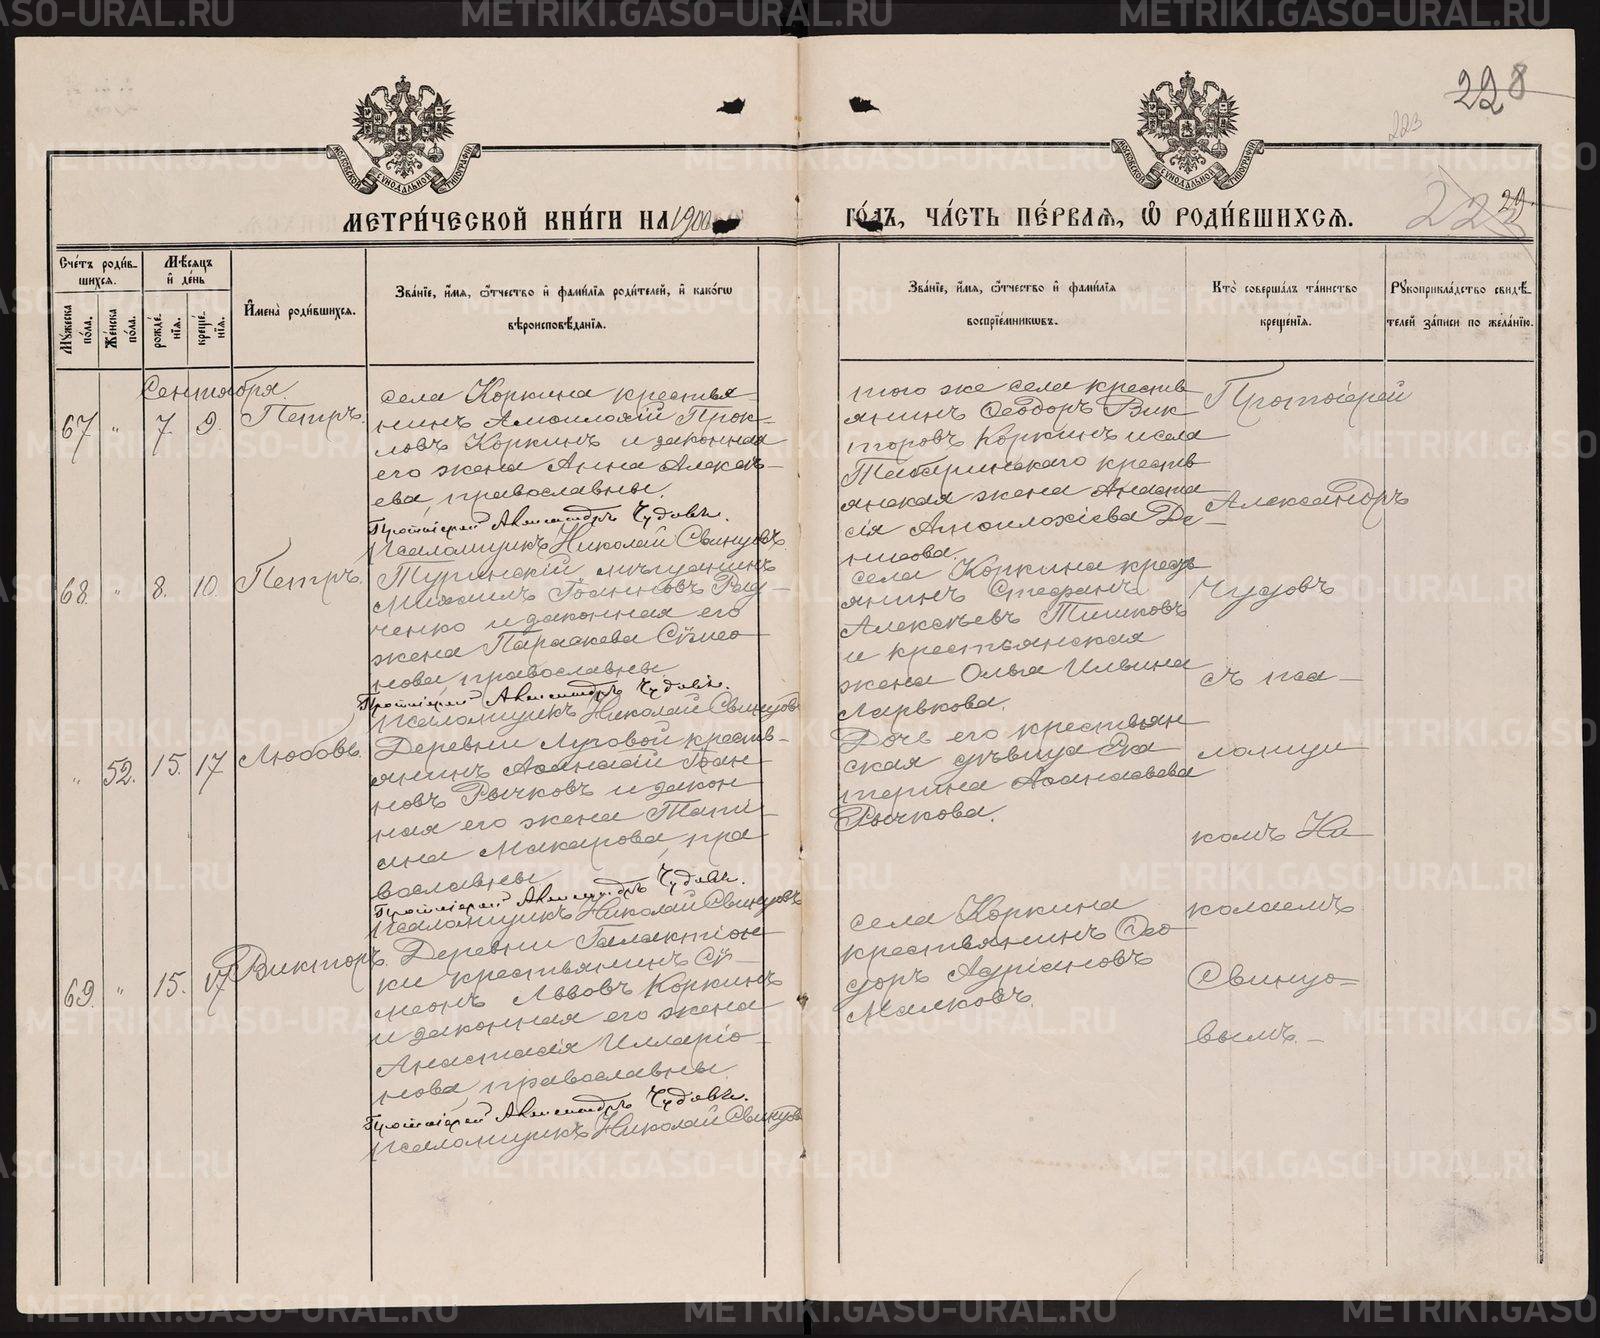 МЕТРИ́ЧЕСКОЙ КНИ́ГИ НА 1900
ГО́ДЪ, ЧА́СТЬ ПЕ́РВАѦ, Ѡ҆ РОДИ́ВШИХСѦ.
228
223
29
Сче́тъ роди́в-
шихся.
Мѣ́сяцъ
и҆ де́нь
Му́жеска
по́ла.
Же́нска
по́ла.
рожде́-
нїя.
креще́-
нїя.
И҆мена̀ роди́вшихся.
Зва́нїе, и҆́мя, ѻ҆́тчество и҆ фами́лїя роди́телей, и҆ како́гѡ
вѣроисповѣ́данїя.
Зва́нїе, и҆́мя, ѻ҆́тчество и҆ фами́лїя
воспрїе́мникѡвъ.
Кто̀ соверша́лъ та́инство
креще́нїя.
Рукоприкла́дство свидѣ́-
телей за́писи по жела́нїю.
Сентября.
67 " 7. 9. Петръ.
села Коркина крестья
нинъ Амфилохій Прок-
ловъ Коркинъ и законная
его жена Анна Алексѣ-
ева, православны.
Протоіерей Александръ Чудовъ.
Псаломщикъ Николай Свинцовъ
того же села кресть
янинъ Ѳеодоръ Вик-
торовъ Коркинъ и села
Табаринскаго кресть
янская жена Анаста
сія Амфилохіева Де-
нисова.
68. " 8. 10. Петръ.
Туринскій мѣщанинъ
Михаилъ Іоанновъ Рад-
ченко и законная его
жена Параскева Сѵмео
нова, православны
Протоіерей Александръ Чудовъ.
Псаломщикъ Николай Свинцовъ
села Коркина кресть
янинъ Стефанъ
Алексѣевъ Тишковъ
и крестьянская
жена Ольга Ильина
Ларькова.
" 52. 15. 17 Любовь.
Деревни Луговой кресть-
янинъ Аѳанасій Іоан-
новъ Рычковъ и закон
ная его жена Тати-
ана Макарова, пра-
вославны
Протоіерей Александръ Чудовъ.
Псаломщикъ Николай Свинцовъ
Дочь его крестьян
ская дѣвица Ека
терина Аѳанасьева
Рычкова.
69. " 15. 17 Викторъ.
Деревни Галактіон-
ки крестьянинъ Сѵ-
меонъ Львовъ Коркинъ
и законная его жена
Анастасія Илларіо-
нова, православны
Протоіерей Александръ Чудовъ.
Псаломщикъ Николай Свинцовъ
села Коркина
крестьянинъ Ѳео-
доръ Адріановъ
Малковъ.
Протоіерей
Александръ
Чудовъ
съ пса-
ломщи
комъ Ни
колаемъ
Свинцо-
вымъ. -
METRIKI.GASO-URAL.RU